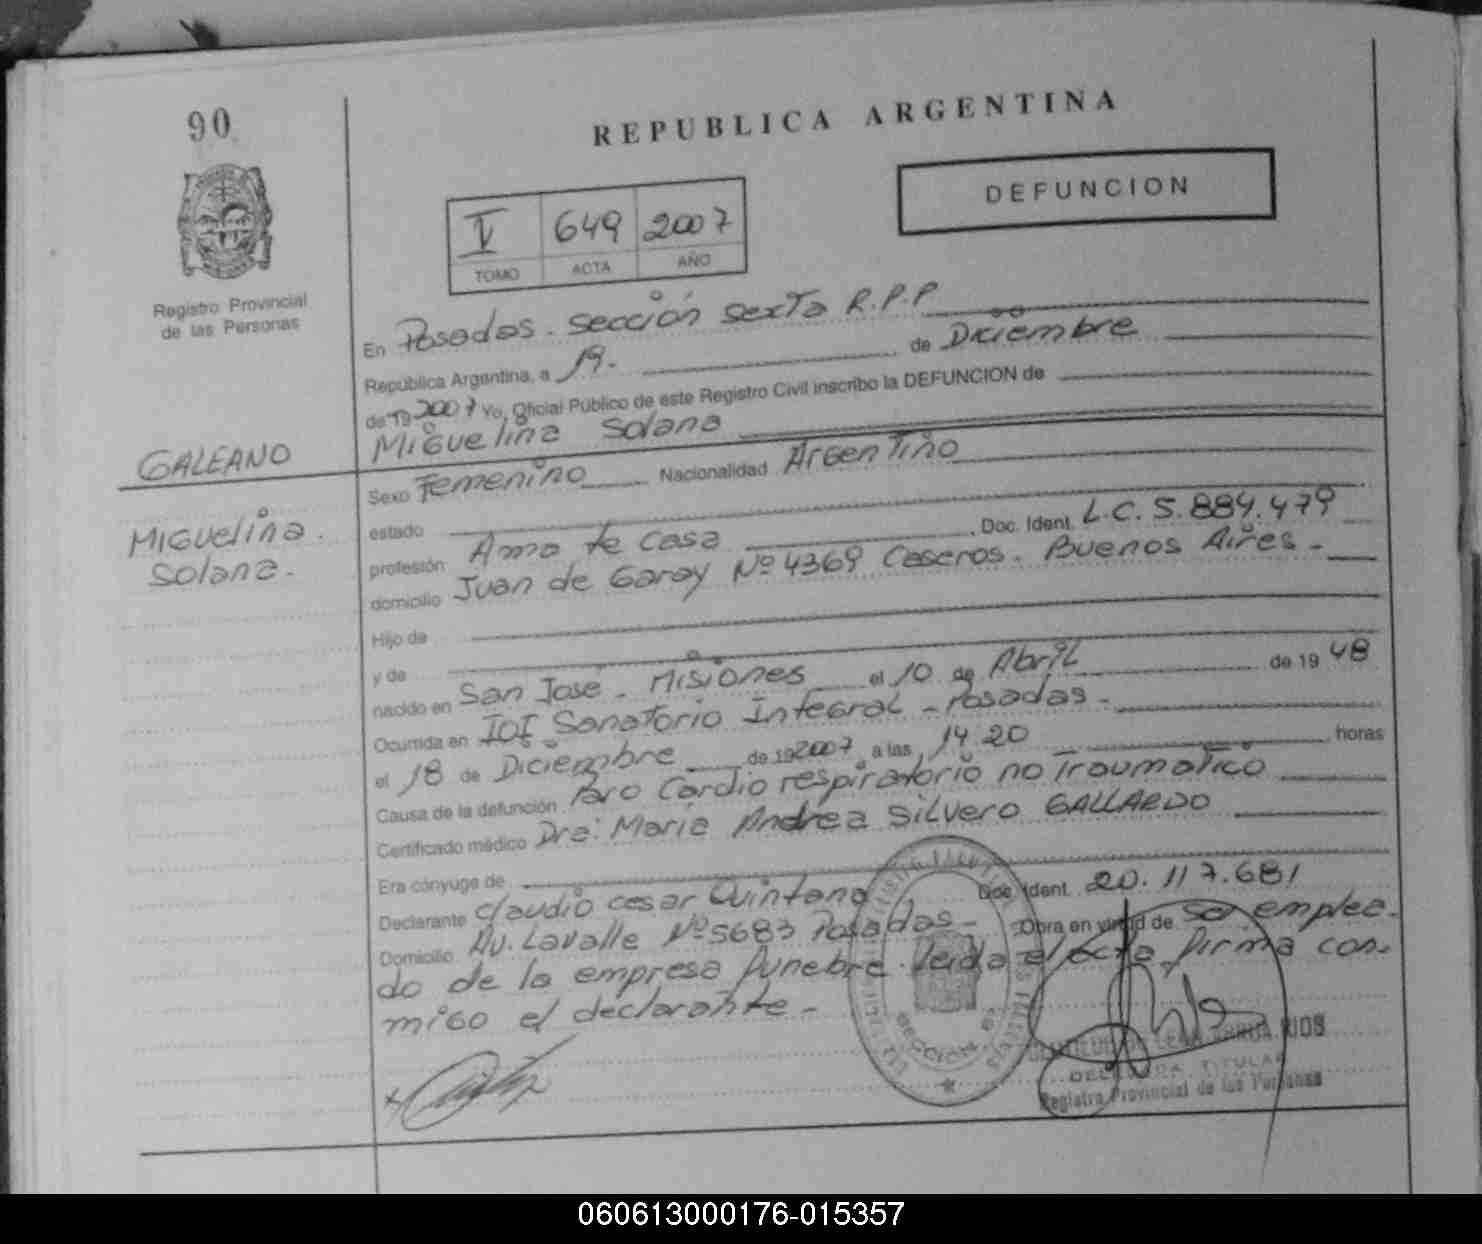 90
REPUBLICA ARGENTINA
DEFUNCION
V 649 2007
TOMO ACTA AÑO
Registro Provincial
de las Personas
En Posadas. sección sexta R.P.P
República Argentina, a 19. de Diciembre
de 19 2007 Yo, Oficial Público de este Registro Civil inscribo la DEFUNCION de
Miguelina Solana
GALEANO
Miguelina.
Solana.
Sexo Femenino Nacionalidad Argentino
estado
profesión Ama de casa Doc. Ident. L.C. 5.884.479
domicilio Juan de Garay Nº 4369 Caseros. Buenos Aires.
Hijo de
y de
nacido en San José. Misiones el 10 de Abril de 19 48
Ocurrida en IOT Sanatorio Integral - Posadas.
el 18 de Diciembre de 19 2007, a las 14 20 horas
Causa de la defunción Paro Cardio respiratorio no Traumatico
Certificado médico Dra: Maria Andrea Silvero GALLARDO
Era cónyuge de
Declarante Claudio cesar Quintana Doc. Ident. 20.117.681
Domicilio Av. Lavalle Nº 5683 Posadas. Obra en virtud de ser emplea-
do de la empresa funebre. Leida el acta firma con-
migo el declarante.
RIOS
TITULAR
Registro Provincial de las Personas
060613000176-015357